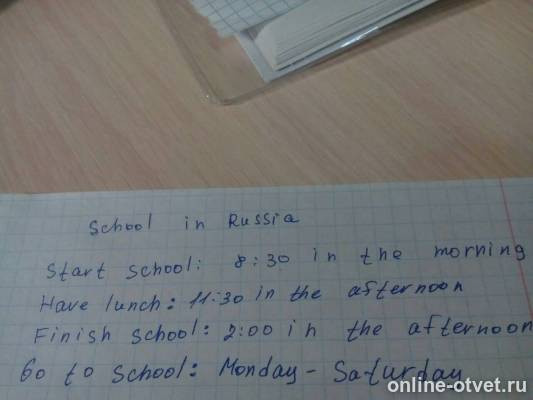 School in Russia
Start school: 8:30 in the morning
Have lunch: 11:30 in the afternoon
Finish school: 2:00 in the afternoon
Go to school: Monday - Saturday
online-otvet.ru